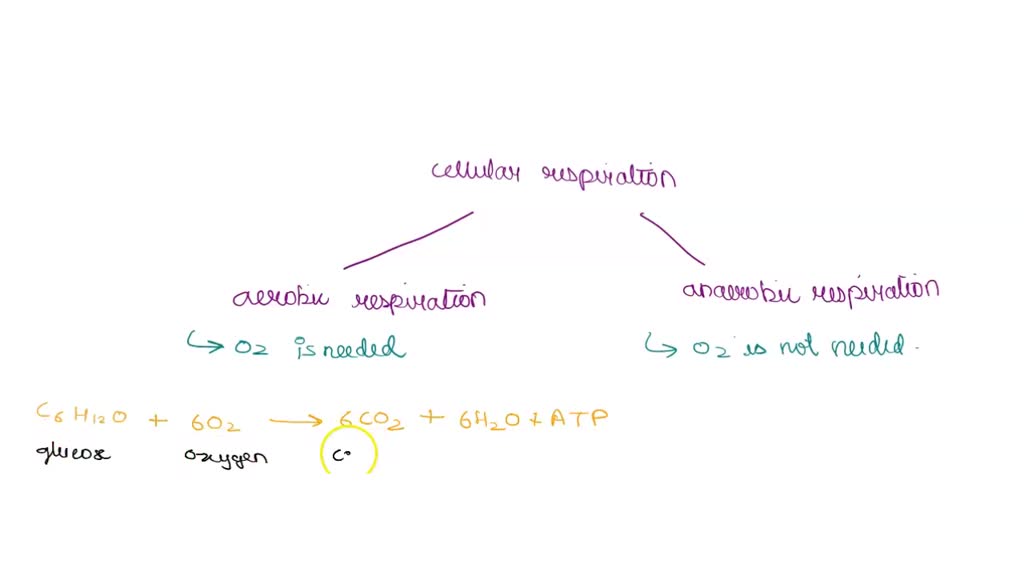 cellular respiration
aerobic respiration
anaerobic respiration
↳ O2 is needed
↳ O2 is not needed.
C6H12O + 6O2 → 6CO2 + 6H2O + ATP
glucose oxygen co